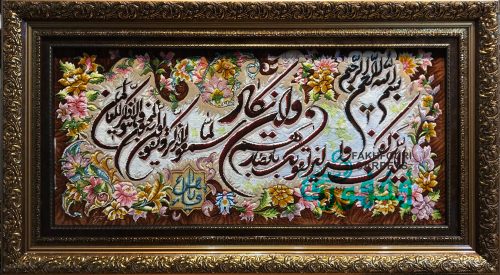 بسم الله الرحمن الرحیم
وان یکاد الذین کفروا لیزلقونک بابصارهم لما سمعوا الذکر ویقولون انه لمجنون وما هو الا ذکر للعالمین
FAKHOURI
CARPET